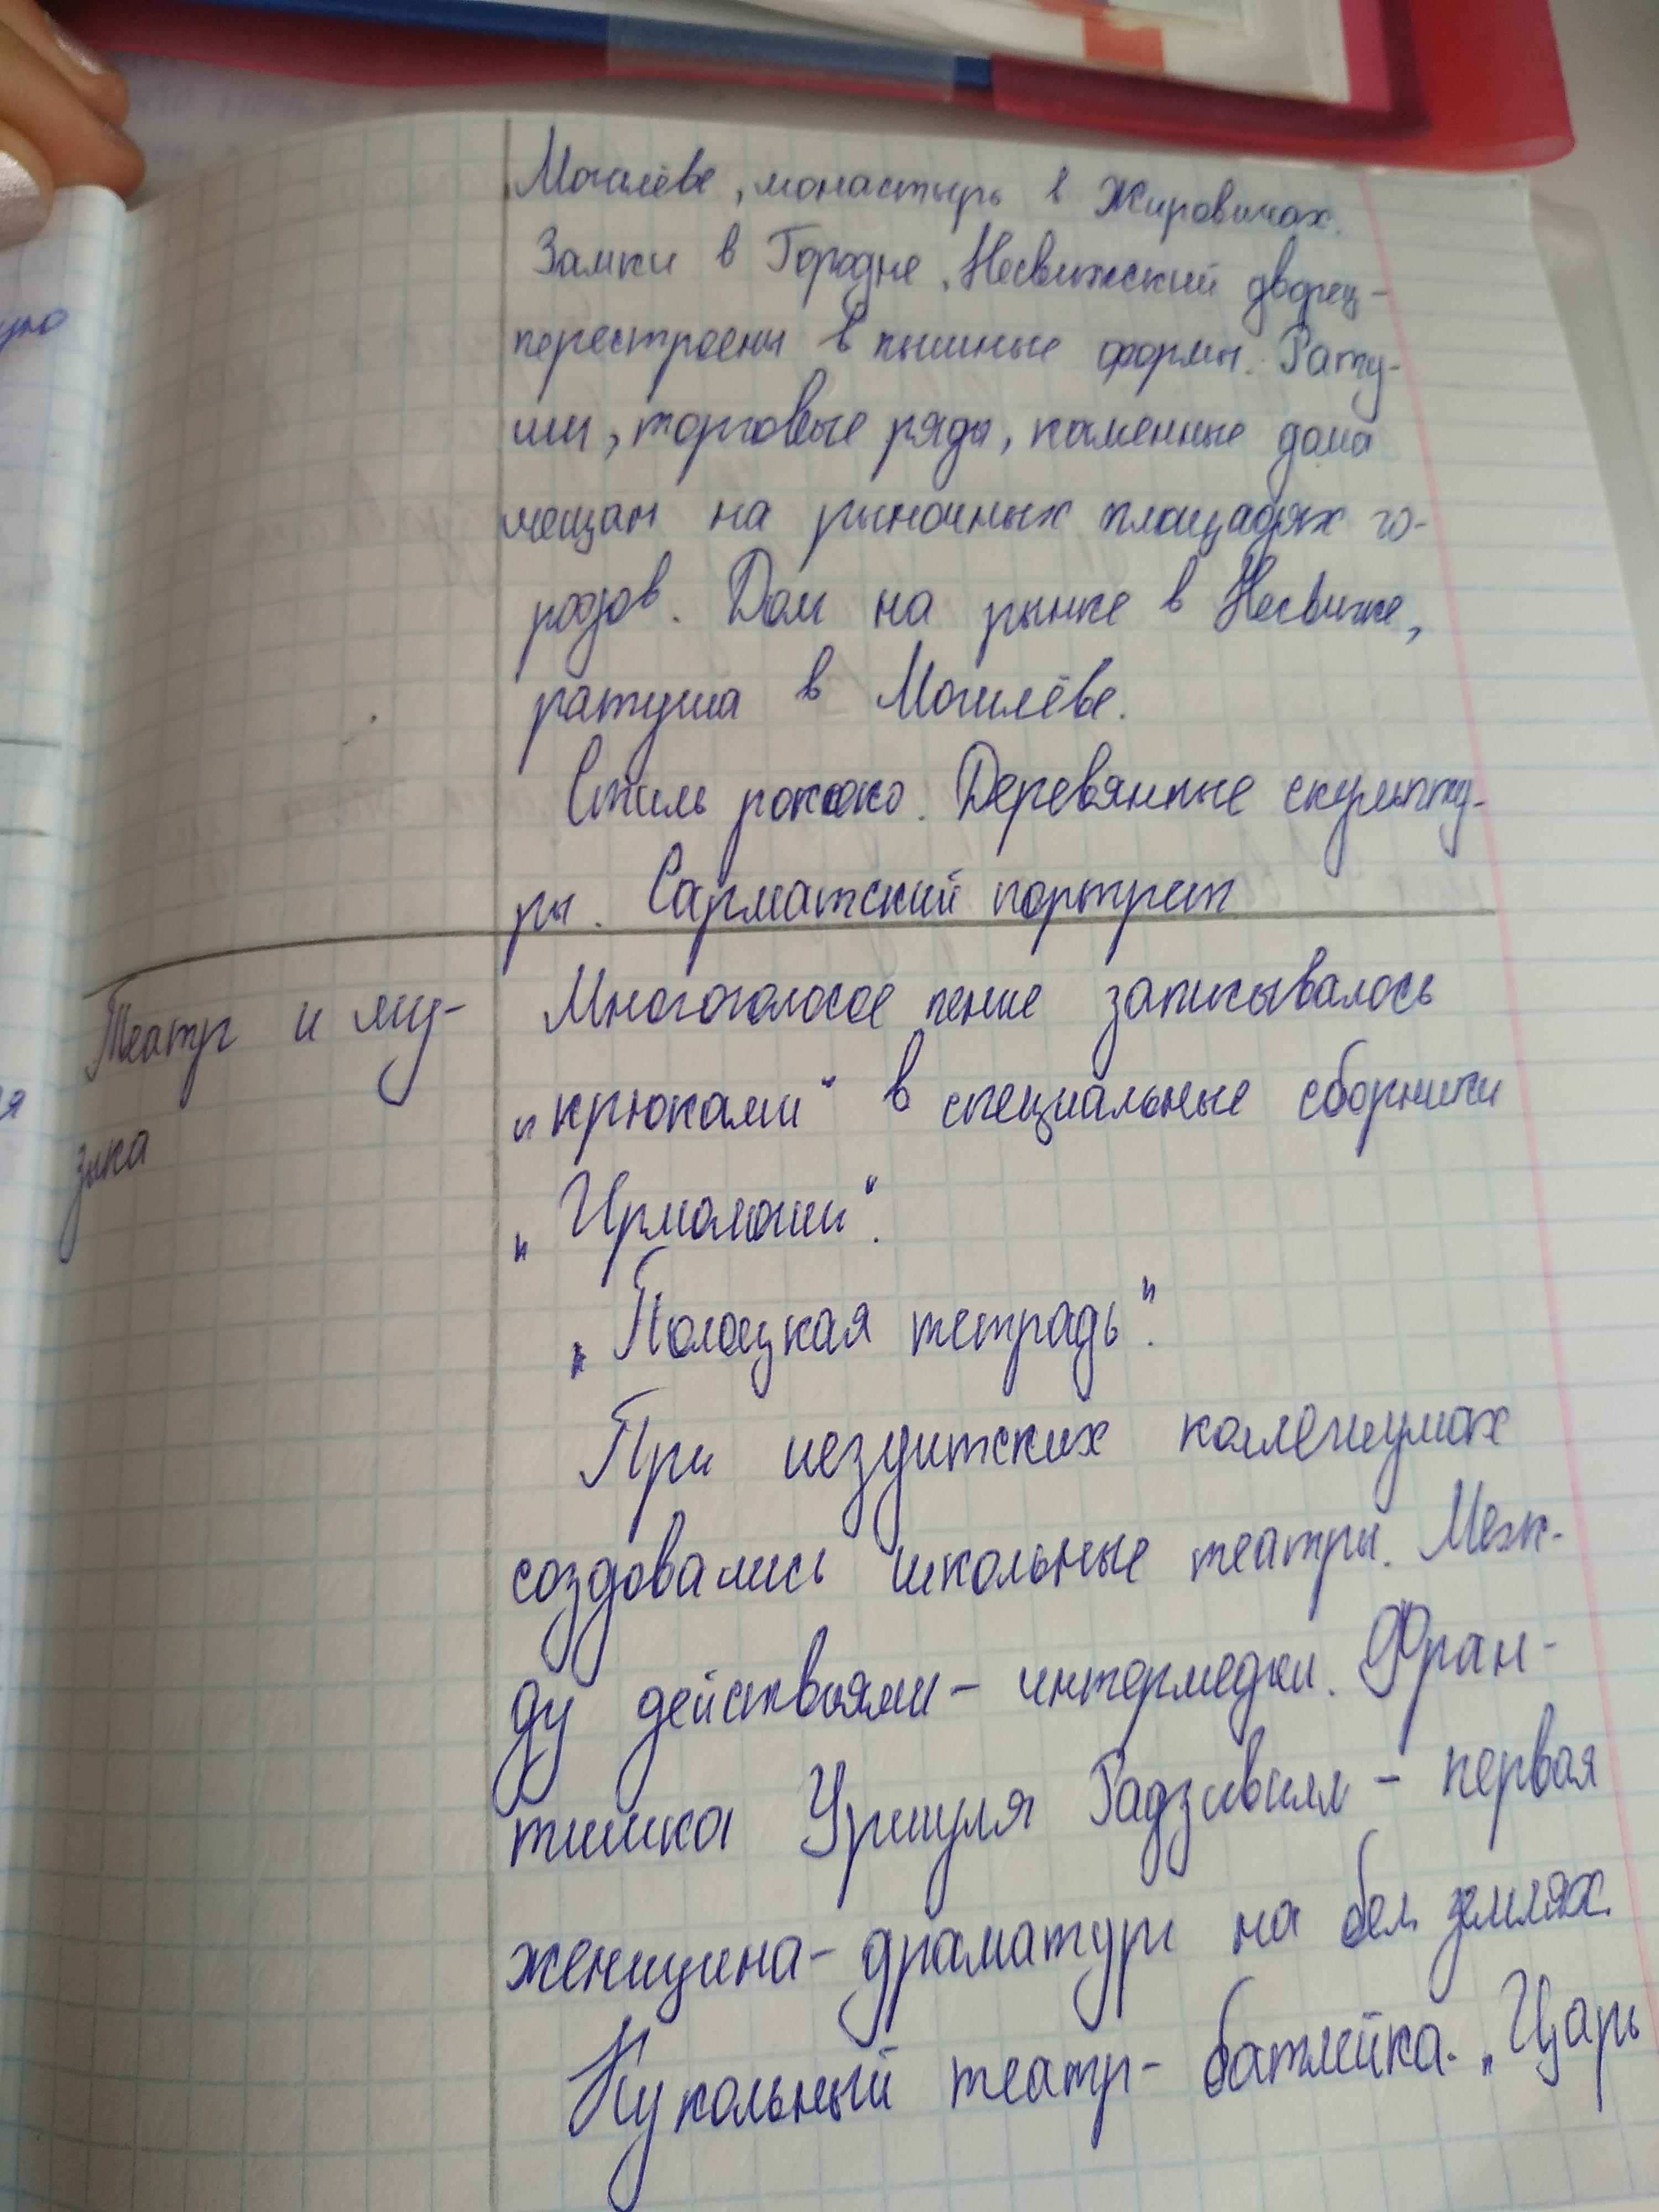 Могилёве, монастырь в Жировичах.
Замки в Городне, Несвижский дворец-
перестроены в пышные формы. Рату-
ши, торговые ряды, каменные дома
мещан на рыночных площадях го-
родов. Дом на рынке в Несвиже,
ратуша в Могилёве.
Стиль рококо. Деревянные скульпту-
ры. Сарматский портрет
Театр и му-
зыка
Многоголосое пение записывалось
„крюками" в специальные сборники
„Ирмологии".
„Полоцкая тетрадь".
При иезуитских коллегиумах
создовались школьные театры. Меж-
ду действиями - интермедии. Фран-
тишка Уршуля Радзивилл - первая
женщина-драматург на бел. землях.
Кукольный театр - батлейка. „Царь